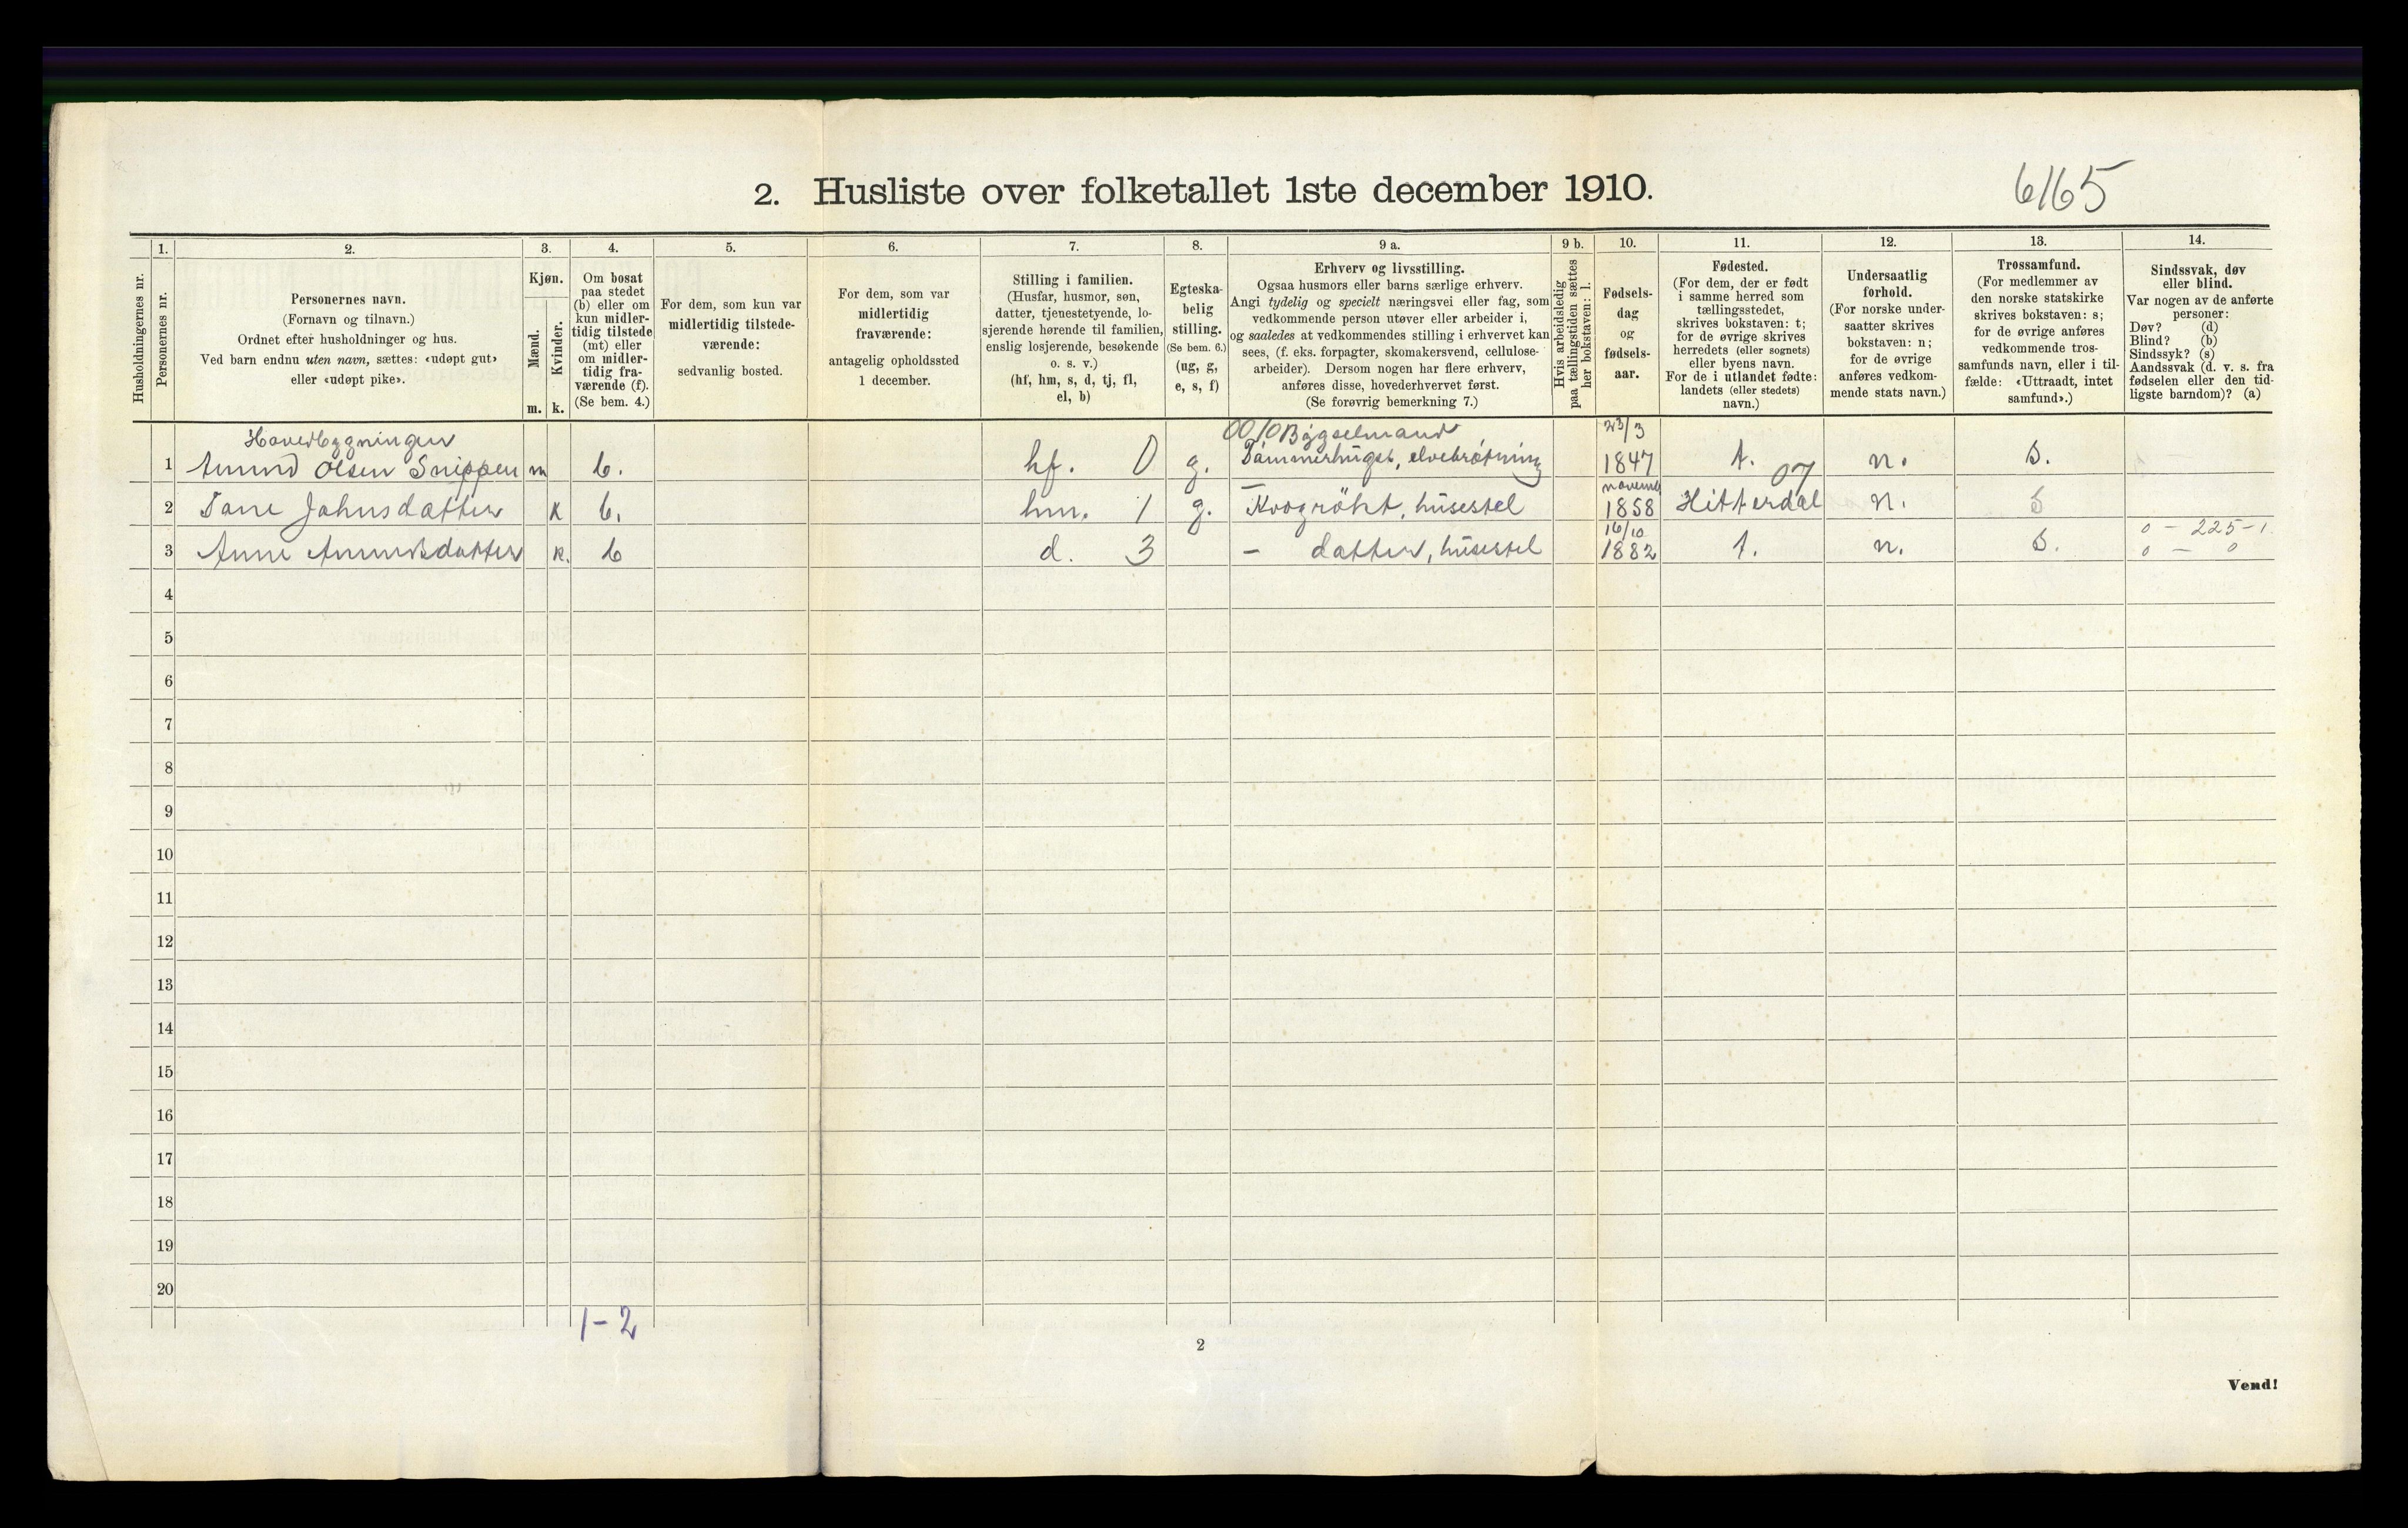 2. Husliste over folketallet 1ste december 1910.
6165
Husholdningernes nr.
1.
Personernes nr.
2.
Personernes navn.
(Fornavn og tilnavn.)
Ordnet efter husholdninger og hus.
Ved barn endnu uten navn, sættes: «udøpt gut»
eller «udøpt pike».
3.
Kjøn.
Mænd.
Kvinder.
m. k.
4.
Om bosat
paa stedet
(b) eller om
kun midler-
tidig tilstede
(mt) eller
om midler-
tidig fra-
værende (f).
(Se bem. 4.)
5.
For dem, som kun var
midlertidig tilstede-
værende:
sedvanlig bosted.
6.
For dem, som var
midlertidig
fraværende:
antagelig opholdssted
1 december.
7.
Stilling i familien.
(Husfar, husmor, søn,
datter, tjenestetyende, lo-
sjerende hørende til familien,
enslig losjerende, besøkende
o. s. v.)
(hf, hm, s, d, tj, fl,
el, b)
8.
Egteska-
belig
stilling.
(Se bem. 6.)
(ug, g,
e, s, f)
9 a.
Erhverv og livsstilling.
Ogsaa husmors eller barns særlige erhverv.
Angi tydelig og specielt næringsvei eller fag, som
vedkommende person utøver eller arbeider i,
og saaledes at vedkommendes stilling i erhvervet kan
sees, (f. eks. forpagter, skomakersvend, cellulose-
arbeider). Dersom nogen har flere erhverv,
anføres disse, hovederhvervet først.
(Se forøvrig bemerkning 7.)
9 b.
Hvis arbeidsledig
paa tællingstiden sættes
her bokstaven: l.
10.
Fødsels-
dag
og
fødsels-
aar.
11.
Fødested.
(For dem, der er født
i samme herred som
tællingsstedet,
skrives bokstaven: t;
for de øvrige skrives
herredets (eller sognets)
eller byens navn.
For de i utlandet fødte:
landets (eller stedets)
navn.)
12.
Undersaatlig
forhold.
(For norske under-
saatter skrives
bokstaven: n;
for de øvrige
anføres vedkom-
mende stats navn.)
13.
Trossamfund.
(For medlemmer av
den norske statskirke
skrives bokstaven: s;
for de øvrige anføres
vedkommende tros-
samfunds navn, eller i til-
fælde: «Uttraadt, intet
samfund».)
14.
Sindssvak, døv
eller blind.
Var nogen av de anførte
personer:
Døv? (d)
Blind? (b)
Sindssyk? (s)
Aandssvak (d. v. s. fra
fødselen eller den tid-
ligste barndom)? (a)
Hovedbygningen 00/0 Bygselmand 23/3
1 Amund Olsen Snippen m b. hf. 0 g. Tømmerhugst, elvebrøtning 1847 t. n. s.
07
2 Johnsdatter k b. hm. 1 g. Kvægrökt, husestel novemb 1858 Hitterdal n. s
16/10 0 - 225 - 1
3 Anne Amundsdatter k. b d. 3 - datter, husestel 1882 t. n. s. 0 - 0
4
5
6
7
8
9
10
11
12
13
14
15
16
17
18
19
20
1-2
2
Vend!